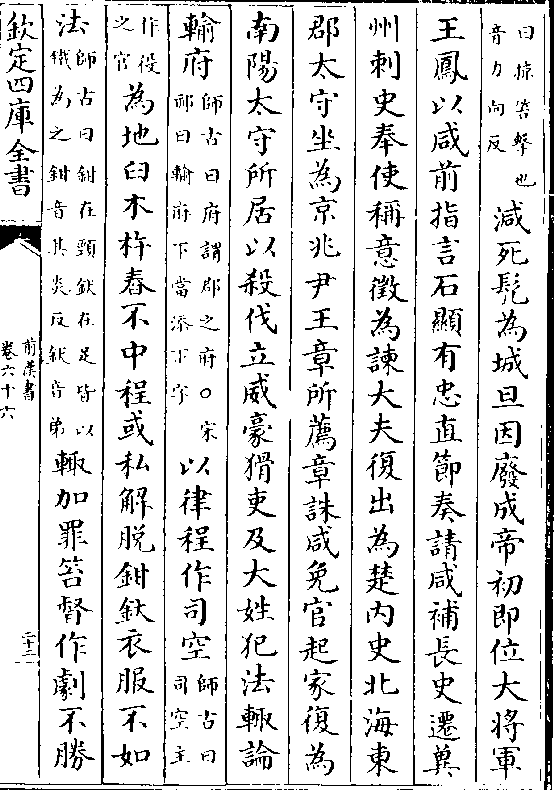 曰掠笞擊也
音力向反
減死髠為城旦因廢成帝初即位大將軍
王鳳以咸前指言石顯有忠直節奏請咸補長史遷冀
州刺史奉使稱意徵為諫大夫復出為楚内史北海東
郡太守坐為京兆尹王章所薦章誅咸免官起家復為
南陽太守所居以殺伐立威豪猾吏及大姓犯法輒論
輸府
師古曰府謂郡之府○宋
祁曰輸府下當添下字
以律程作司空
師古曰
司空主
作役
之官
為地臼木杵舂不中程或私解脱鉗釱衣服不如
法
師古曰鉗在頸釱在足皆以
鐵為之鉗音其炎反釱音弟
輒加罪笞督作劇不勝
欽定四庫全書
前漢書
卷六十六
二十三